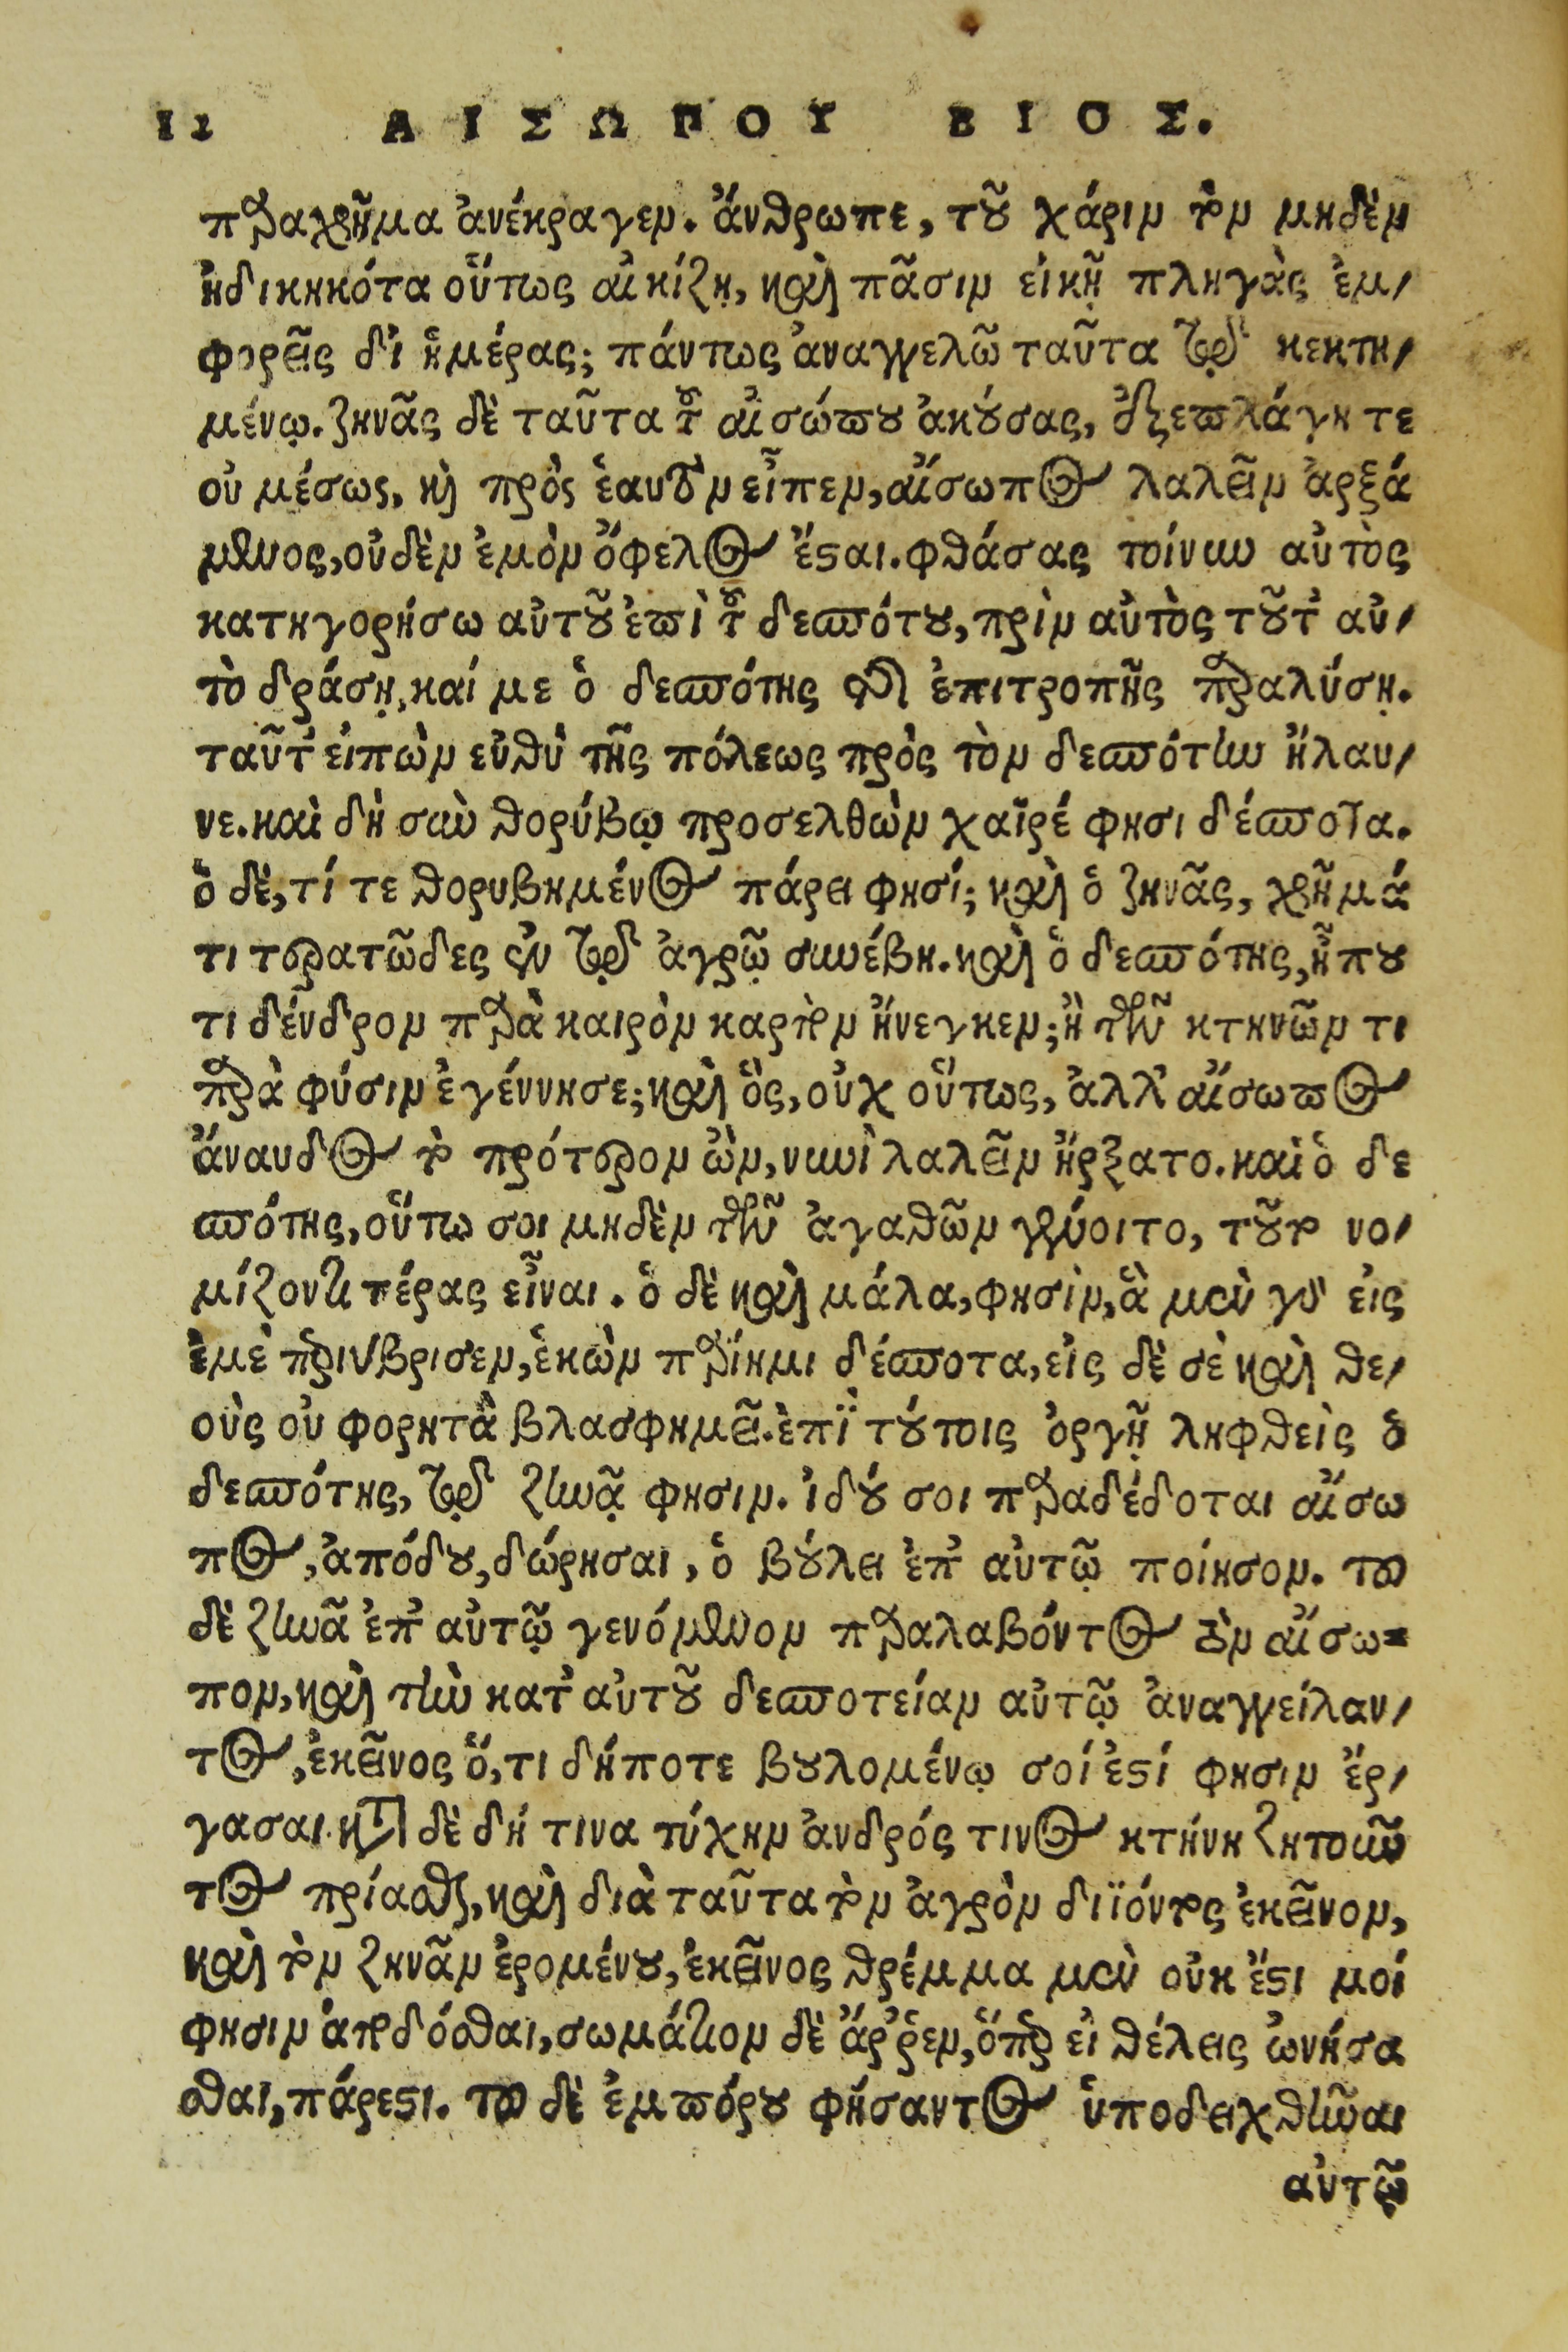 12 ΑΙΣΩΠΟΥ ΒΙΟΣ.
παραχρῆμα ἀνέκραγεν. ἄνθρωπε, τοῦ χάριν τὸν μηδὲν
ἠδικηκότα οὕτως αἰκίζῃ, καὶ πᾶσιν εἰκῇ πληγὰς ἐμ-
φορεῖς δι' ἡμέρας; πάντως ἀναγγελῶ ταῦτα τῷ κεκτη-
μένῳ. ζηνᾶς δὲ ταῦτα τοῦ αἰσώπου ἀκούσας, ἐξεπλάγη τε
οὐ μέσως, καὶ πρὸς ἑαυτὸν εἶπεν, αἴσωπος λαλεῖν ἀρξά
μενος, οὐδὲν ἐμὸν ὄφελος ἔσται. φθάσας τοίνυν αὐτὸς
κατηγορήσω αὐτοῦ ἐπὶ τοῦ δεσπότου, πρὶν αὐτὸς τοῦτ' αὐ-
τὸ δράσῃ, καί με ὁ δεσπότης τῆς ἐπιτροπῆς παραλύσῃ.
ταῦτ' εἰπὼν εὐθὺ τῆς πόλεως πρὸς τὸν δεσπότην ἤλαυ-
νε. καὶ δὴ σὺν θορύβῳ προσελθὼν χαῖρέ φησι δέσποτα.
ὁ δὲ, τί τεθορυβημένος πάρει φησί; καὶ ὁ ζηνᾶς, χρῆμά
τι τερατῶδες ἐν τῷ ἀγρῷ συνέβη. καὶ ὁ δεσπότης, ἦπου
τι δένδρον παρὰ καιρὸν καρπὸν ἤνεγκεν; ἢ τῶν κτηνῶν τι
παρὰ φύσιν ἐγέννησε; καὶ ὃς, οὐχ οὕτως, ἀλλ' αἴσωπος
ἄναυδος τὸ πρότερον ὢν, νυνὶ λαλεῖν ἤρξατο. καὶ ὁ δε
σπότης, οὕτω σοι μηδὲν τῶν ἀγαθῶν γένοιτο, τοῦτο νο-
μίζοντι τέρας εἶναι. ὁ δὲ καὶ μάλα, φησὶν, ἃ μὲν γὰρ εἰς
ἐμὲ περιύβρισεν, ἑκὼν παρίημι δέσποτα, εἰς δὲ σὲ καὶ θε-
οὺς οὐ φορητὰ βλασφημεῖ. ἐπὶ τούτοις ὀργῇ ληφθεὶς ὁ
δεσπότης, τῷ ζηνᾷ φησιν. ἰδού σοι παραδέδοται αἴσω
πος, ἀπόδου, δώρησαι, ὃ βούλει ἐπ' αὐτῷ ποίησον. τοῦ
δὲ ζηνᾶ ἐπ' αὐτῷ γενόμενον παραλαβόντος τὸν αἴσω-
πον, καὶ τὴν κατ' αὐτοῦ δεσποτείαν αὐτῷ ἀναγγείλαν-
τος, ἐκεῖνος ὅ,τι δήποτε βουλομένῳ σοί ἐστί φησιν ἔρ-
γασαι. κατὰ δὲ δή τινα τύχην ἀνδρός τινος κτήνη ζητοῦν
τος πρίασθαι, καὶ διὰ ταῦτα τὸν ἀγρὸν διϊόντος ἐκεῖνον,
καὶ τὸν ζηνᾶν ἐρομένου, ἐκεῖνος θρέμμα μὲν οὐκ ἔστι μοί
φησιν ἀποδόσθαι, σωμάτιον δὲ ἄῤῥεν, ὅπερ εἰ θέλεις ὠνήσα
σθαι, πάρεστι. τοῦ δὲ ἐμπόρου φήσαντος ὑποδειχθῆναι
αὐτῷ